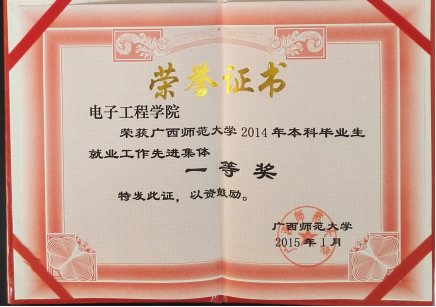 荣誉证书
电子工程学院
荣获广西师范大学2014年本科毕业生
就业工作先进集体
一等奖
特发此证，以资鼓励。
广西师范大学
2015年1月